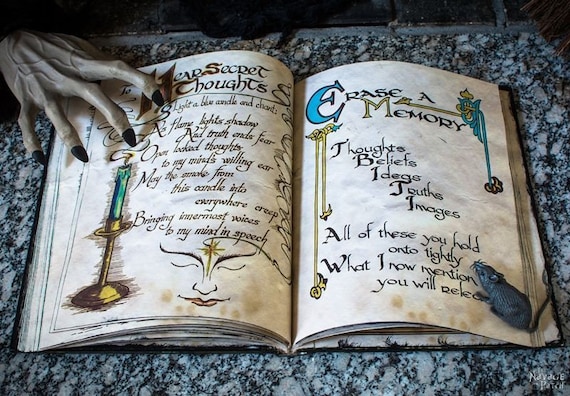 To Hear Secret
Thoughts
Light a blue candle and chant:
As flame lights shadow
And truth ends fear
Open locked thoughts
to my mind's willing ear
May the smoke from
this candle into
everywhere creep
Bringing innermost voices
to my mind in speech
Erase A
Memory
Thoughts
Beliefs
Ideas
Truths
Images
All of these you hold
onto tightly
What I now mention
you will
Navage
Patch